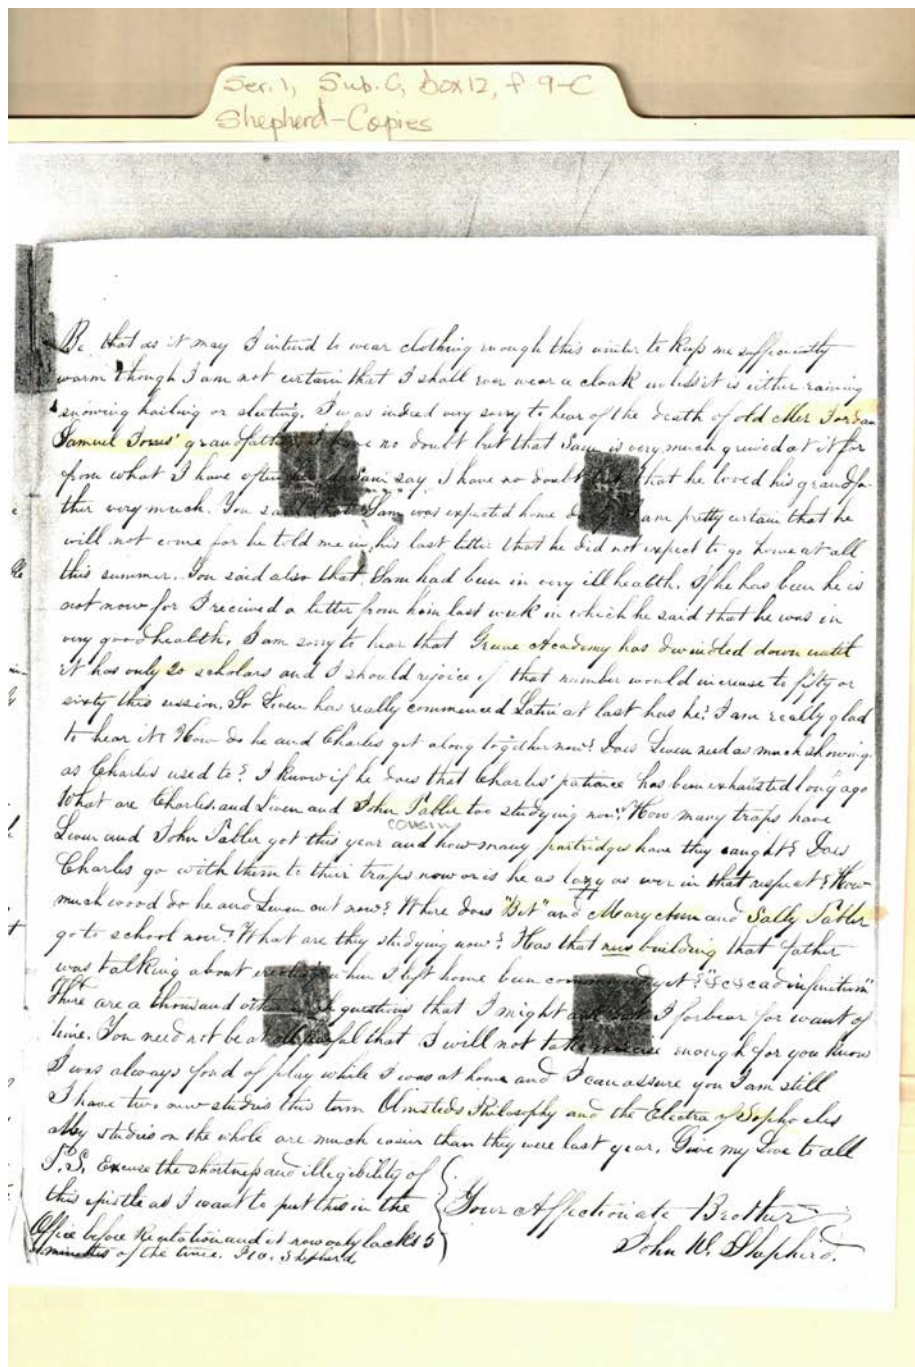 Ser. 1, Sub. C, Box 12, f 9-C
Shepherd-Copies
Be that as it may I intend to wear clothing enough this winter to keep me sufficiently
warm though I am not certain that I shall ever wear a cloak unless it is either raining
snowing hailing or sleeting. I was indeed very sorry to hear of the death of old Mr Jordan
Samuel Torus' grandfather. I have no doubt but that Sam is very much grieved at it for
from what I have often Sam say I have no doubt but that he loved his grandfa-
ther very much. You said that Sam was expected home I am pretty certain that he
will not come for he told me in his last letter that he did not expect to go home at all
this summer. You said also that Sam had been in very ill health. If he has been he is
not now for I received a letter from him last week in which he said that he was in
very good health. I am sorry to hear that Academy has dwindled down until
it has only 20 scholars and I should rejoice if that number would increase to fifty or
sixty this session. So Liven has really commenced Latin at last has he? I am really glad
to hear it? How do he and Charles get along together now? Does Liven need as much showing
as Charles used to? I know if he does that Charles' patience has been exhausted long ago
What are Charles, and Liven and John Pabler too studying now? How many traps have
cousin
Liven and John Pabler got this year and how many partridges have they caught? Does
Charles go with them to their traps now or is he as lazy as ever in that respect? How
much wood do he and Liven cut now? Where does "Bet" and Mary Ann and Sally Pabler
go to school now? What are they studying now? Has that new building that father
was talking about when I left home been commenced yet? "&c &c ad infinitum"
There are a thousand other questions that I might ask but I forbear for want of
time. You need not be at all fearful that I will not take exercise enough for you know
I was always fond of play while I was at home and I can assure you I am still
I have two new studies this term Olmsteds Philosophy and the Electra of Sophocles
My studies on the whole are much easier than they were last year. Give my Love to all
P.S. Excuse the shortness and illegibility of
this epistle as I want to put this in the
Office before Recitation and it now only lacks 5
minutes of the time. J. W. Shepherd.
Your Affectionate Brother
John W. Shepherd.